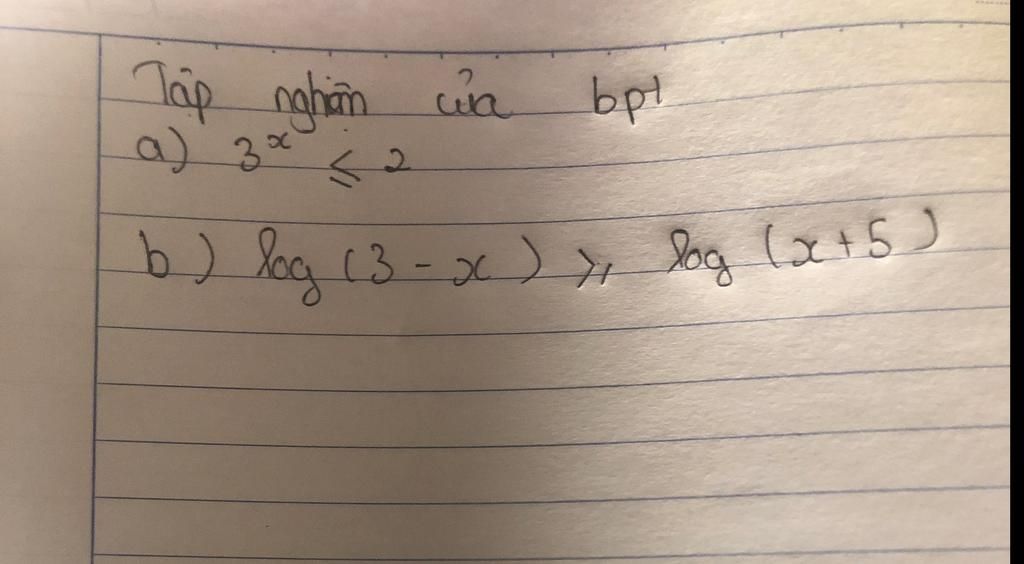 Tập nghiệm của bpt
a) 3ˣ ≤ 2
b) log (3 - x) ≥ log (x + 5)